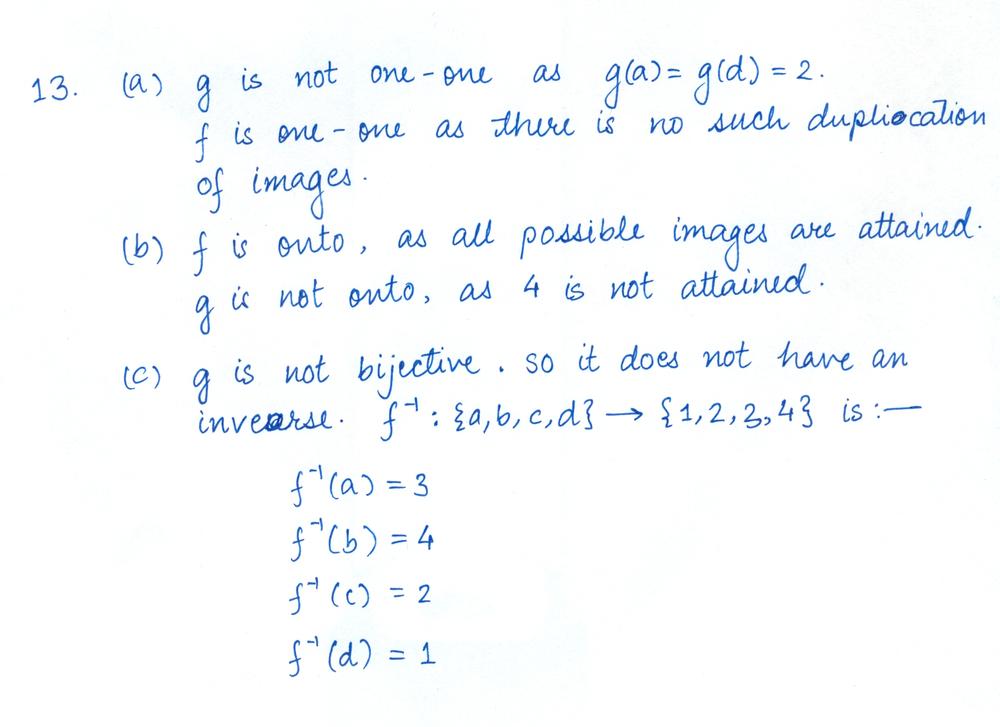 13. (a) g is not one-one as g(a) = g(d) = 2.
f is one-one as there is no such duplication
of images.
(b) f is onto, as all possible images are attained.
g is not onto, as 4 is not attained.
(c) g is not bijective. so it does not have an
inverse. f⁻¹ : {a,b,c,d} → {1,2,3,4} is :—
f⁻¹(a) = 3
f⁻¹(b) = 4
f⁻¹(c) = 2
f⁻¹(d) = 1